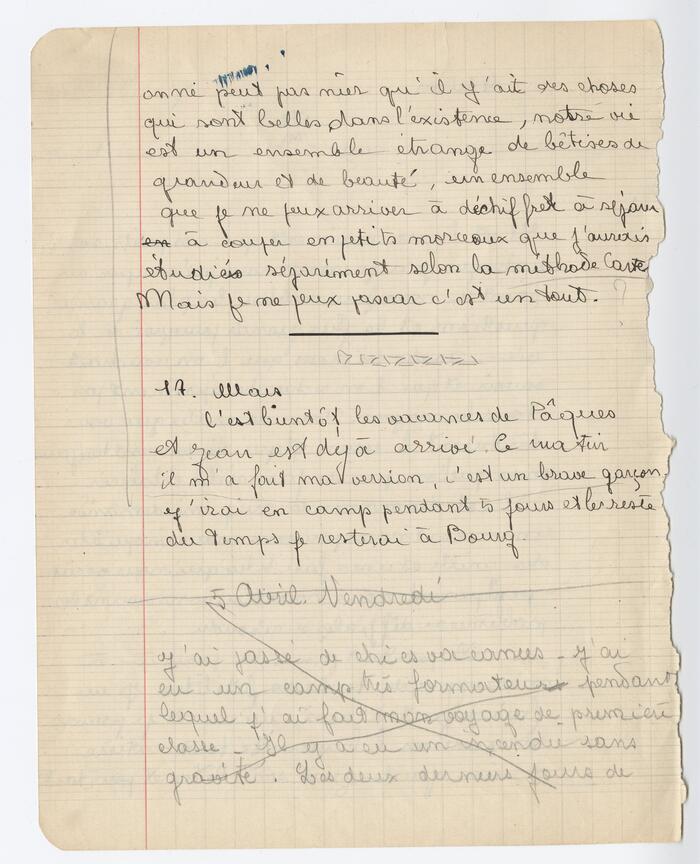 on ne peut pas nier qu'il y'ait des choses
qui sont belles dans l'existence, notre vie
est un ensemble étrange de bêtises de
grandeur et de beauté, un ensemble
que je ne peux arriver à déchiffrer à séparer
en à couper en petits morceaux que j'aurais
étudiés séparément selon la méthode
Mais je ne peux pas car c'est un tout.
?
17. Mars
C'est bientôt les vacances de Pâques
et Jean est déjà arrivé. Ce matin
il m'a fait ma version, c'est un brave garçon
j'irai en camp pendant 5 jours et le reste
du temps je resterai à Bourg.
5 Avril. Vendredi
j'ai passé de chics vacances - j'ai
eu un camp très formateur pendant
lequel j'ai fait mon voyage de première
classe - Il y a eu un incendie sans
gravité. Les deux derniers jours de